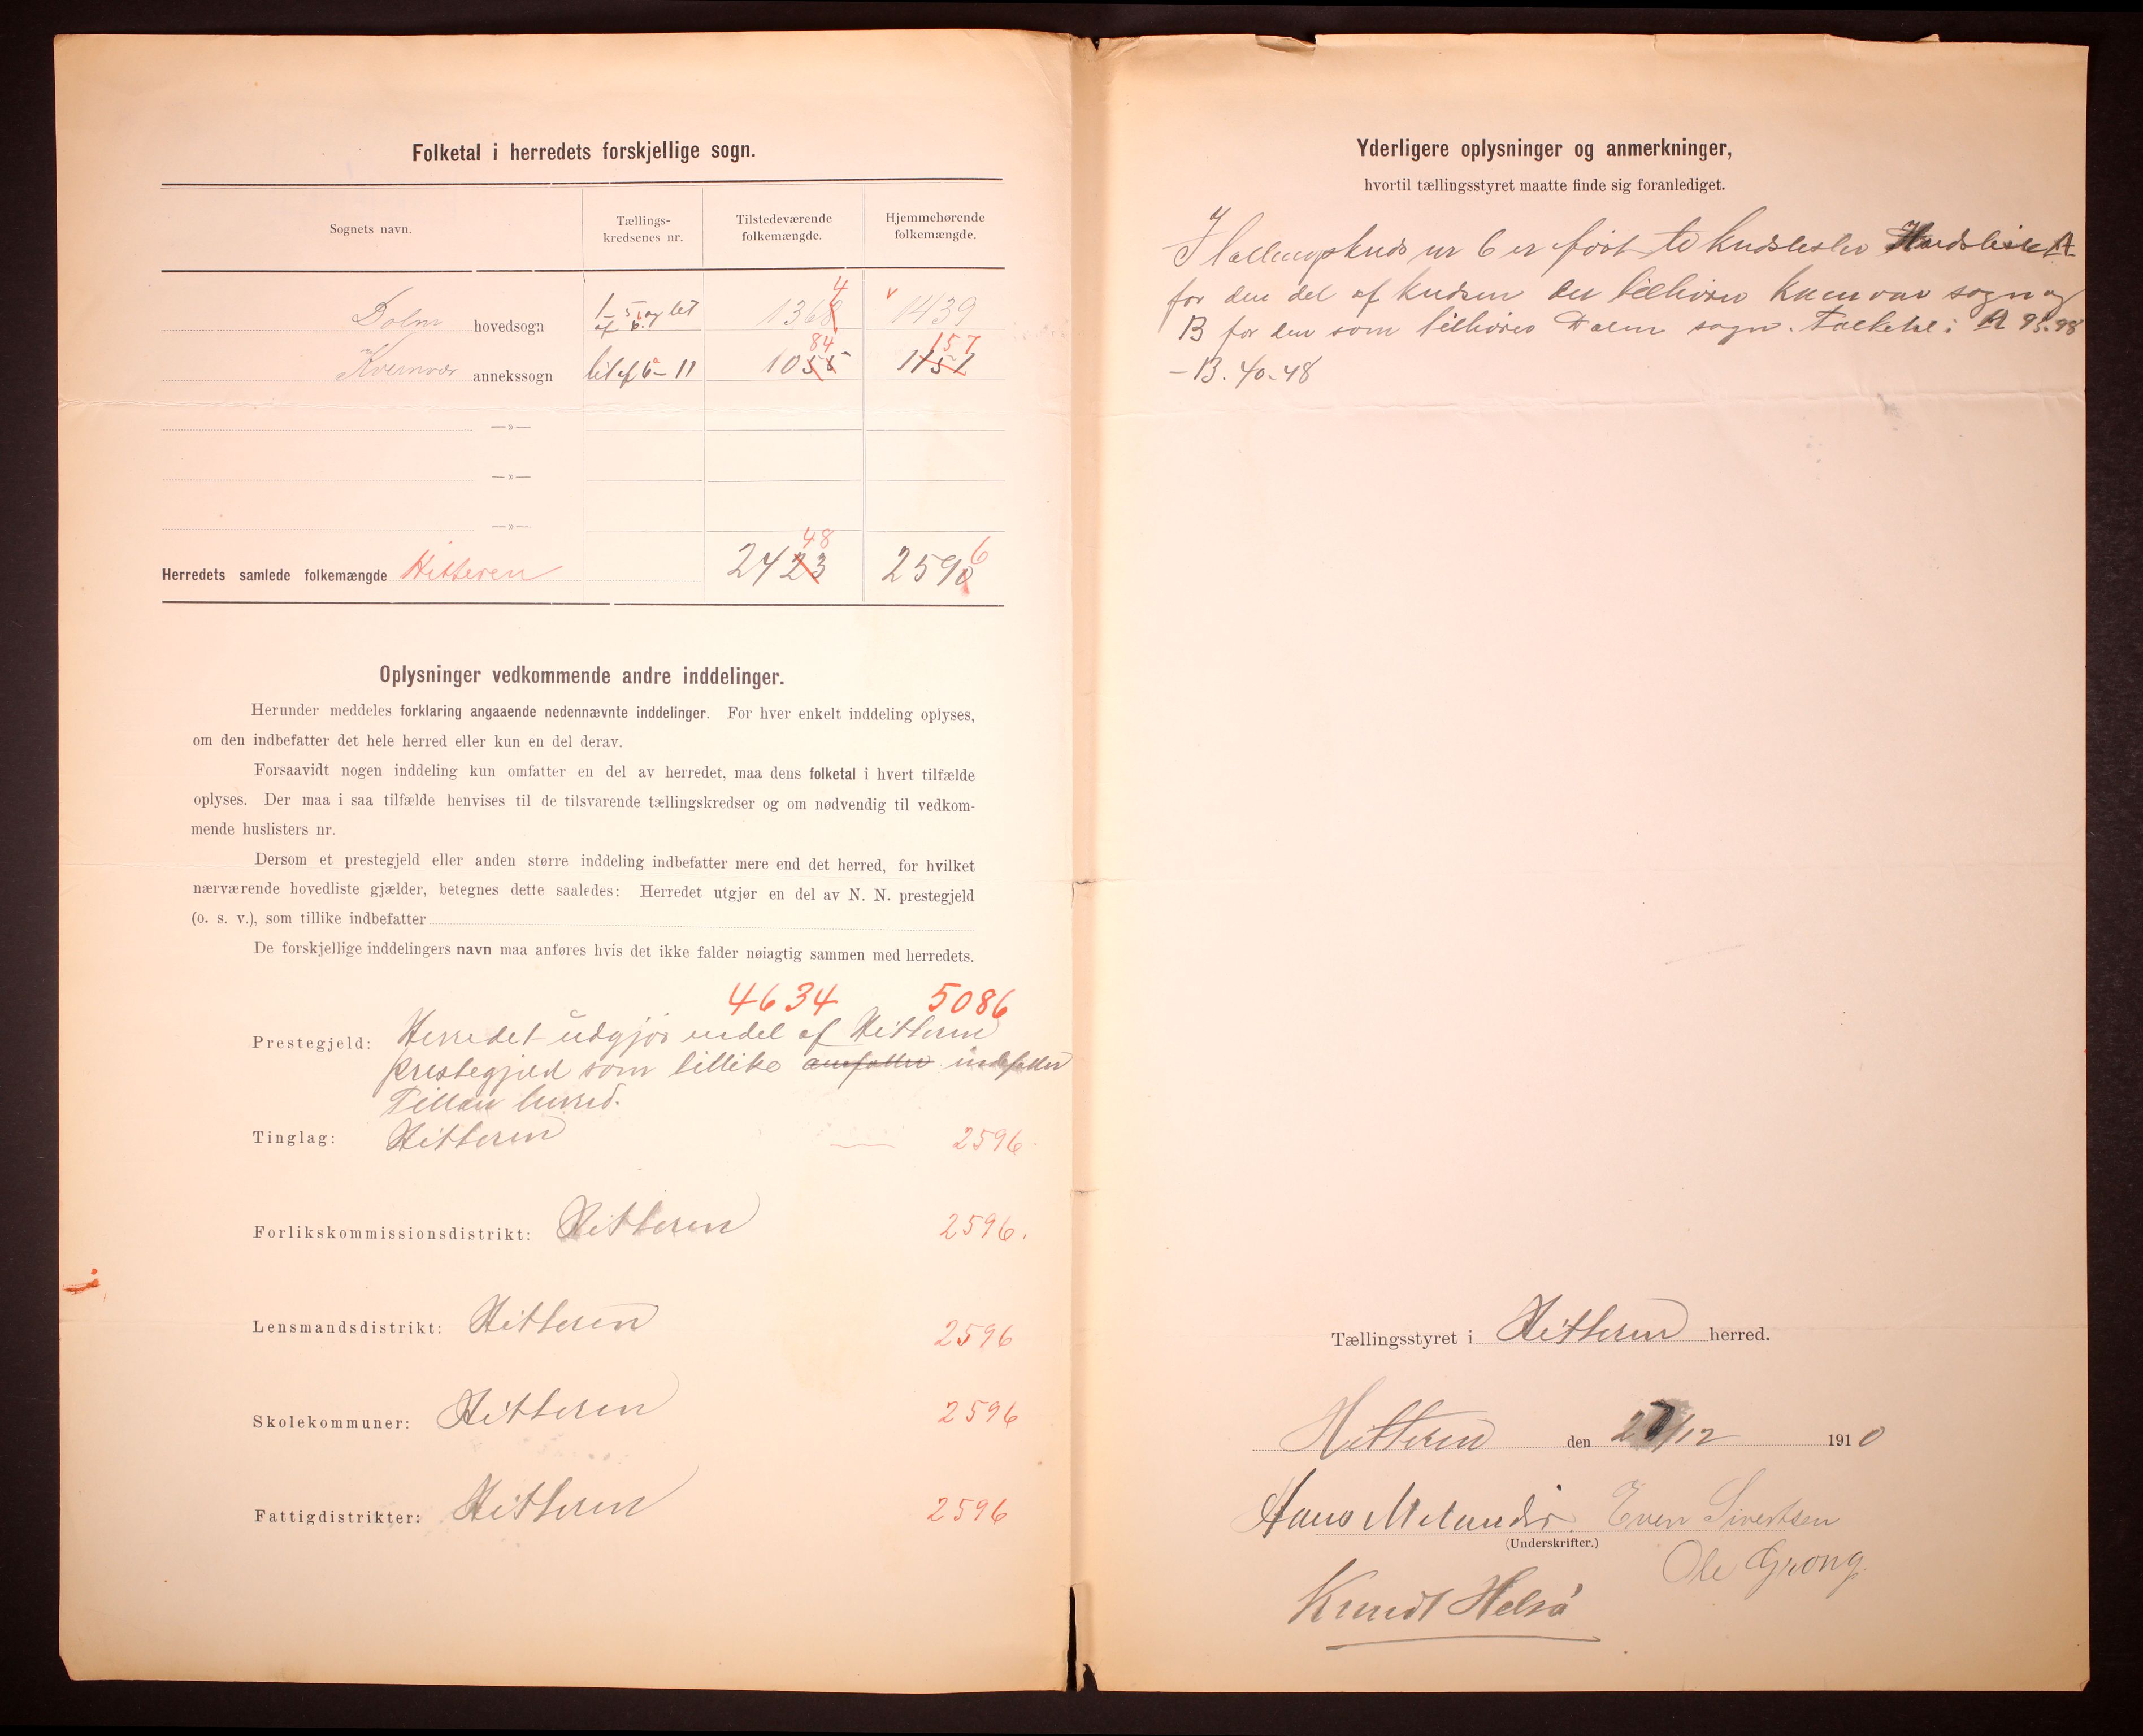 Folketal i herredets forskjellige sogn.
Sognets navn.
Tællings-
kredsenes nr.
Tilstedeværende
folkemængde.
Hjemmehørende
folkemængde.
4
Dolm hovedsogn 1-5 og lit 1368 v 1439
af 6.
84 157
Kvernvær annekssogn lit af 6a - 11 1055 1151
—»—
—»—
—»—
48 6
Herredets samlede folkemængde Hitteren 2423 2590
Oplysninger vedkommende andre inddelinger.
Herunder meddeles forklaring angaaende nedennævnte inddelinger. For hver enkelt inddeling oplyses,
om den indbefatter det hele herred eller kun en del derav.
Forsaavidt nogen inddeling kun omfatter en del av herredet, maa dens folketal i hvert tilfælde
oplyses. Der maa i saa tilfælde henvises til de tilsvarende tællingskredser og om nødvendig til vedkom-
mende huslisters nr.
Dersom et prestegjeld eller anden større inddeling indbefatter mere end det herred, for hvilket
nærværende hovedliste gjælder, betegnes dette saaledes: Herredet utgjør en del av N. N. prestegjeld
(o. s. v.), som tillike indbefatter
De forskjellige inddelingers navn maa anføres hvis det ikke falder nøiagtig sammen med herredets.
4634 5086
Prestegjeld: Herredet udgjør endel af Hitteren
prestegjeld som tillike omfatter indbefatter
Fillan herred.
Tinglag: Hitteren 2596
Forlikskommissionsdistrikt: Hitteren 2596.
Lensmandsdistrikt: Hitteren 2596
Skolekommuner: Hitteren 2596
Fattigdistrikter: Hitteren 2596
Yderligere oplysninger og anmerkninger,
hvortil tællingsstyret maatte finde sig foranlediget.
I tællingskreds nr 6 er ført to kredslister Kredsliste A
for den del af kredsen der tilhører Kvenvær sogn og
B for den som tilhører Dolm sogn. Folketal: A 95.98
- B. 40-48
Tællingsstyret i Hitteren herred.
Hitteren den 27/12 1910
Hans Melandsø. Even Sivertsen
(Underskrifter.)
Ole Grong.
Knudt Helsø